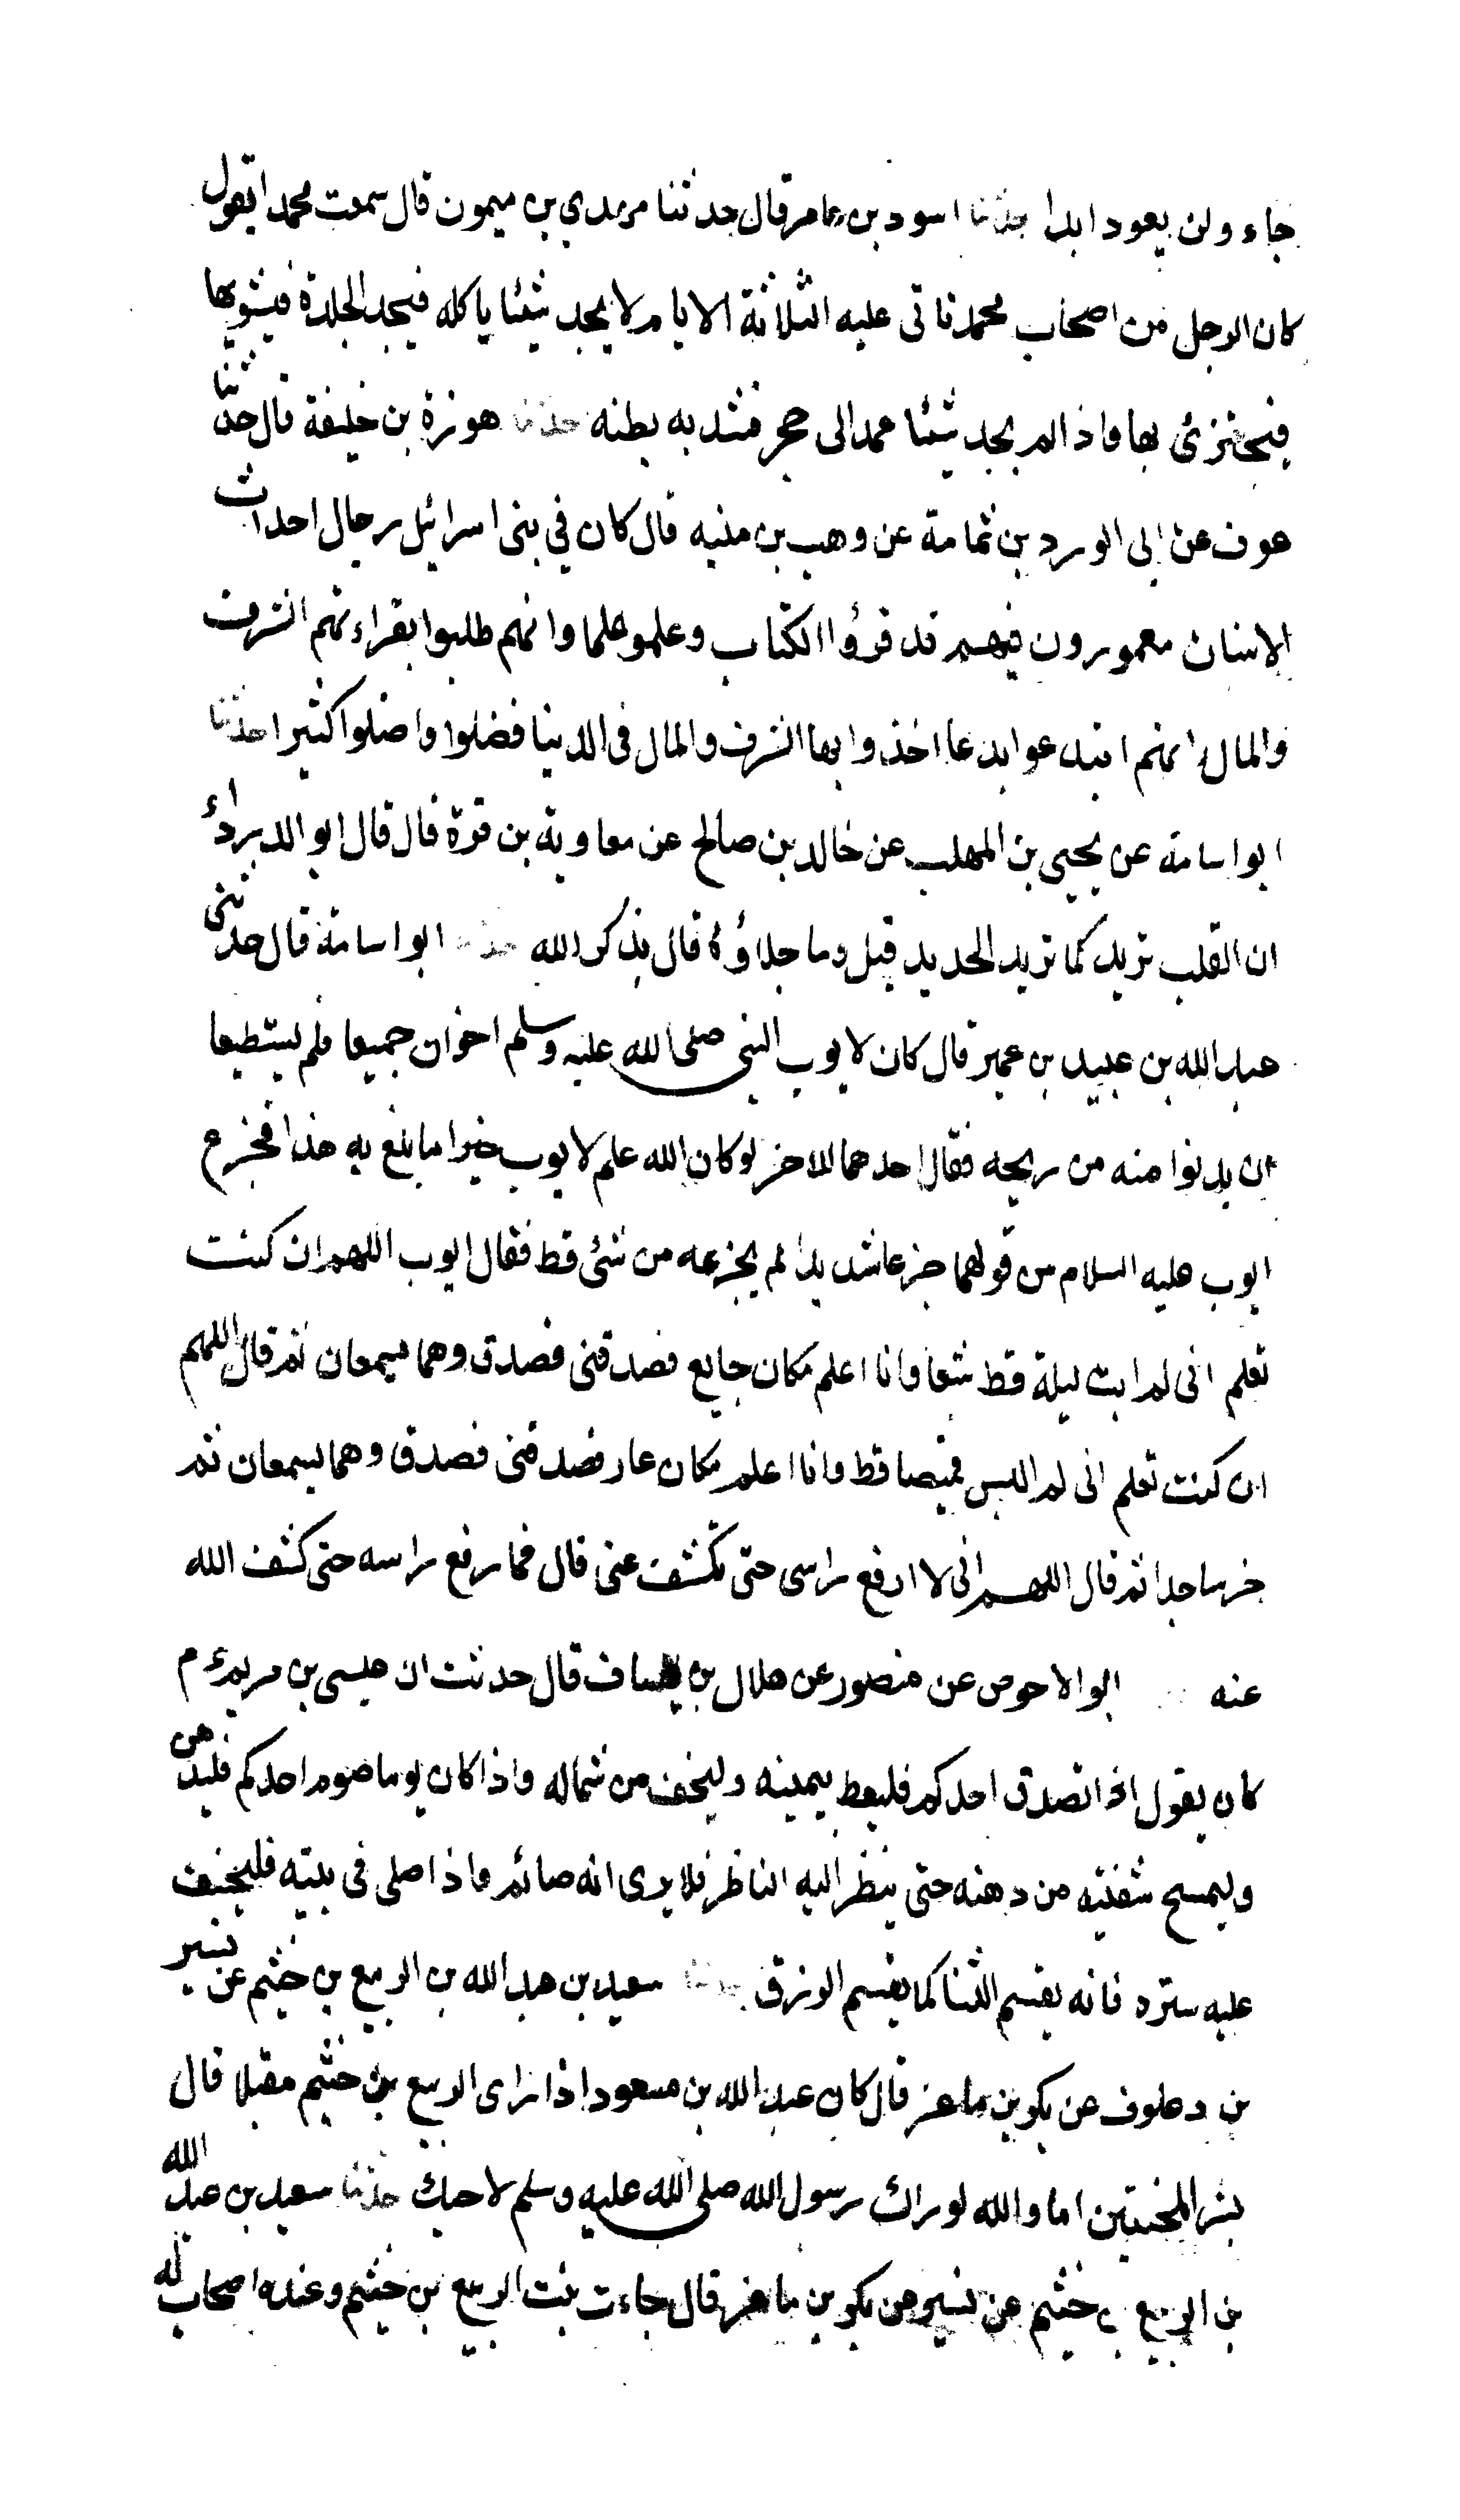 جاء ولن يعود ابدا حدثنا اسود بن عامر قال حدثنا مهدي بن ميمون قال سمعت محمدا يقول
كان الرجل من اصحاب محمد تاتى عليه الثلاثة الايام لا يجد شيئا ياكله فيجد الجلدة فيشويها
فيجتزئ بها فاذا لم يجد شيئا عمد الى حجر فشد به بطنه حدثنا هوذة بن خليفة قال حدثنا
عوف عن ابى الورد بن ثمامة عن وهب بن منبه قال كان في بنى اسرائيل رجال احداث
الاسنان معمورون فيهم قد قرؤا الكتاب وعلموا علما وانهم طلبوا بقراءتهم الشرف
والمال انهم ابتدعوا بدعا اخذوا بها الشرف والمال فى الدنيا فضلوا واضلوا كثيرا حدثنا
ابو اسامة عن يحيى بن المهلب عن خالد بن صالح عن معاوية بن قرة قال قال ابو الدرداء
ان القلب تربد كما تربد الحديد قيل وما جلاؤه قال بذكر الله حدثنا ابو اسامة قال حدثنى
عبد الله بن عبيد بن عمير قال كان لايوب النبى صلى الله عليه وسلم اخوان جميعا فلم يستطيعا
ان يدنوا منه من ريحه فقال احدهما للاخر لو كان الله علم لايوب خيرا ما بلغ به هذا فجزع
ايوب عليه السلام من قولهما جزعا شديدا لم يجزعه من شئ قط فقال ايوب اللهم ان كنت
تعلم انى لم ابت ليلة قط شبعا وانا اعلم مكان جايع فصدقنى فصدق وهما يسمعان ثم قال اللهم
ان كنت تعلم انى لم البس قميصا قط وانا اعلم مكان عار فصدقنى فصدق وهما يسمعان ثم
خر ساجدا ثم قال اللهم انى لا ارفع راسى حتى تكشف عنى قال فما رفع راسه حتى كشف الله
عنه ابو الاحوص عن منصور عن هلال بن يساف قال حدثت ان عيسى بن مريم ءم
كان يقول اذا تصدق احدكم فليعط بيمينه وليخف من شماله واذا كان يوما صوم احدكم فليدهن
وليمسح شفتيه من دهنه حتى ينظر اليه الناظر فلا يرى انه صائم واذا صلى فى بيته فليخف
عليه ستره فانه يقسم الثنا كما يقسم الرزق حدثنا سعيد بن عبد الله بن الربيع بن خثيم عن نسير
بن دعلوف عن بكر بن ماعز قال كان عبد الله بن مسعود اذا راى الربيع بن خثيم مقبلا قال
بشر المخبتين اما والله لو راك رسول الله صلى الله عليه وسلم لاحبك حدثنا سعيد بن عبد الله
بن الربيع بن خثيم عن نسير عن بكر بن ماعز قال جاءت بنت الربيع بن خثيم وعنده اصحاب له